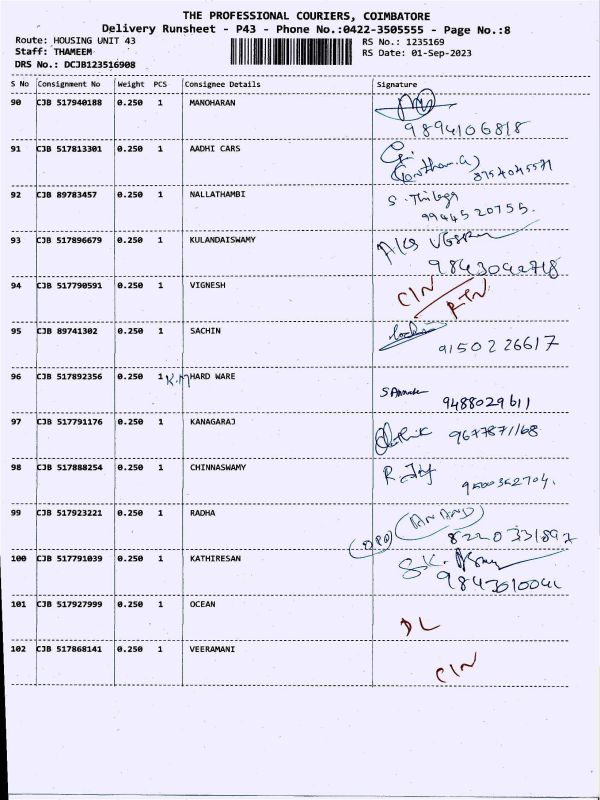 THE PROFESSIONAL COURIERS, COIMBATORE
Delivery Runsheet - P43 - Phone No.:0422-3505555 - Page No.:8
Route: HOUSING UNIT 43 RS No.: 1235169
Staff: THAMEEM RS Date: 01-Sep-2023
DRS No.: DCJB123516908
S No Consignment No Weight PCS Consignee Details Signature
90 CJB 517940188 0.250 1 MANOHARAN
9894106818
91 CJB 517813301 0.250 1 AADHI CARS
8754045571
92 CJB 89783457 0.250 1 NALLATHAMBI S. Thilaga
9944520755.
93 CJB 517896679 0.250 1 KULANDAISWAMY
9843042718
94 CJB 517790591 0.250 1 VIGNESH CIN
RTN
95 CJB 89741302 0.250 1 SACHIN
9150226617
96 CJB 517892356 0.250 1 K.M HARD WARE
9488029611
97 CJB 517791176 0.250 1 KANAGARAJ
9677871168
98 CJB 517888254 0.250 1 CHINNASWAMY
9500352704.
99 CJB 517923221 0.250 1 RADHA (ANAND)
(OPP) 8220331897
100 CJB 517791039 0.250 1 KATHIRESAN
101 CJB 517927999 0.250 1 OCEAN
DL
102 CJB 517868141 0.250 1 VEERAMANI
CIN